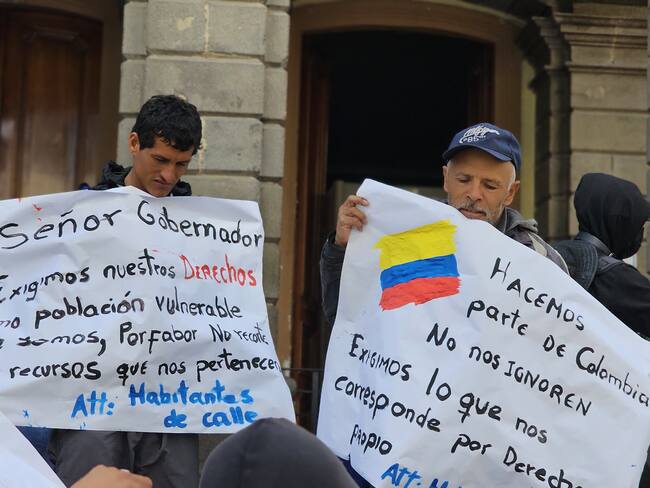 Señor Gobernador
Exigimos nuestros Derechos
población vulnerable
somos, Por favor No recorte
recursos que nos pertenecen
Att: Habitantes
de calle
Hacemos
parte de Colombia
No nos IGNOREN
Exigimos lo que nos
corresponde por Derecho
propio
Att: